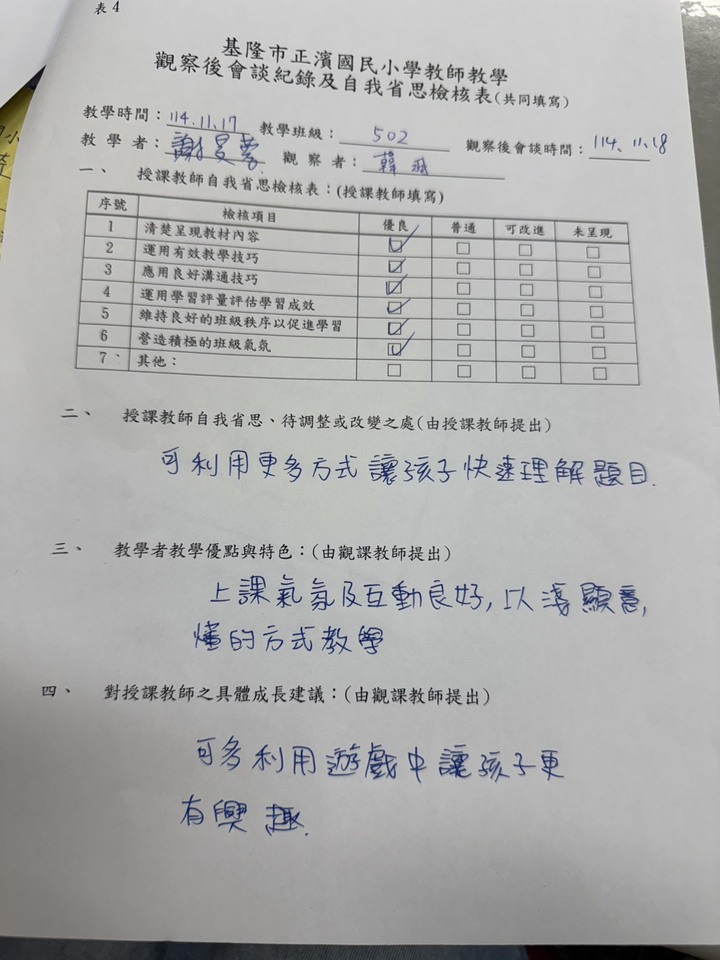 表 4
基隆市正濱國民小學教師教學
觀察後會談紀錄及自我省思檢核表(共同填寫)
教學時間：114.11.17 教學班級：502 觀察後會談時間：114.11.18
教學者：謝 觀察者：韓
一、 授課教師自我省思檢核表：(授課教師填寫)
序號 檢核項目 優良 普通 可改進 未呈現
1 清楚呈現教材內容 ☑ □ □ □
2 運用有效教學技巧 ☑ □ □ □
3 應用良好溝通技巧 ☑ □ □ □
4 運用學習評量評估學習成效 ☑ □ □ □
5 維持良好的班級秩序以促進學習 ☑ □ □ □
6 營造積極的班級氣氛 ☑ □ □ □
7、 其他： □ □ □ □
二、 授課教師自我省思、待調整或改變之處(由授課教師提出)
可利用更多方式讓孩子快速理解題目.
三、 教學者教學優點與特色：(由觀課教師提出)
上課氣氛及互動良好, 以淺顯意,
懂的方式教學
四、 對授課教師之具體成長建議：(由觀課教師提出)
可多利用遊戲中讓孩子更
有興趣.